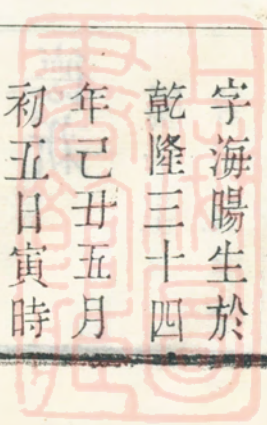 字海暘生於
乾隆三十四
年己丑五月
初五日寅時